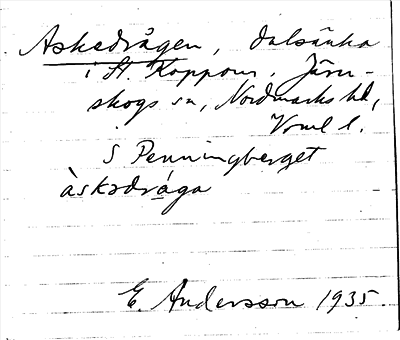 Askedrågen, dalsänka
i St. Koppom, Järn-
skogs sn, Nordmarks hd,
Vrml l.
S Penningberget
àskədrå̀ga
E. Andersson 1935.